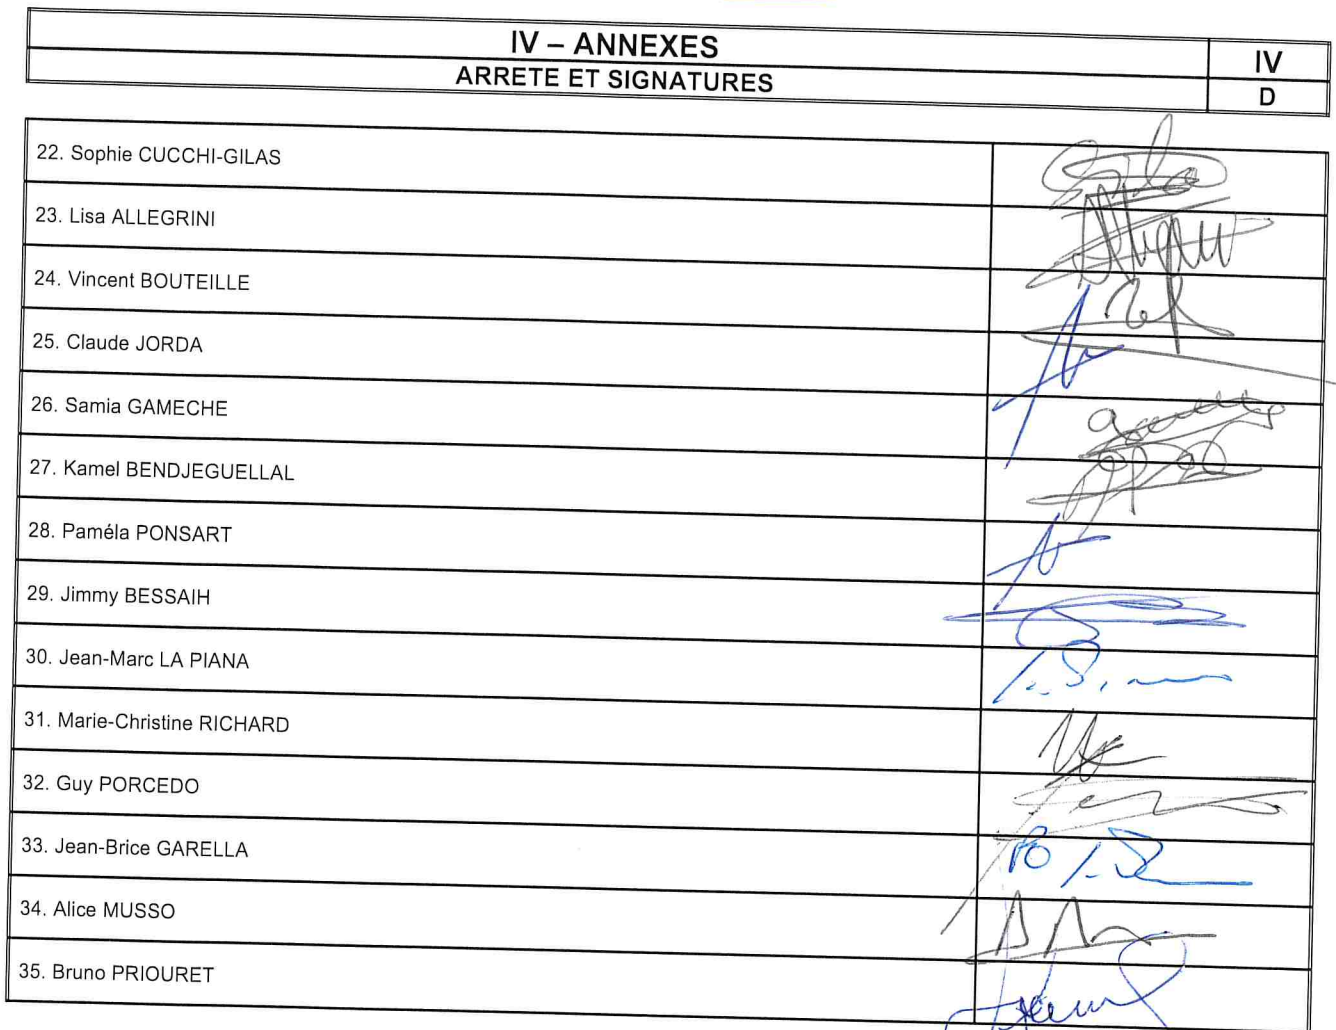 IV – ANNEXES
IV
ARRETE ET SIGNATURES
D
22. Sophie CUCCHI-GILAS
23. Lisa ALLEGRINI
24. Vincent BOUTEILLE
25. Claude JORDA
26. Samia GAMECHE
27. Kamel BENDJEGUELLAL
28. Paméla PONSART
29. Jimmy BESSAIH
30. Jean-Marc LA PIANA
31. Marie-Christine RICHARD
32. Guy PORCEDO
33. Jean-Brice GARELLA
34. Alice MUSSO
35. Bruno PRIOURET